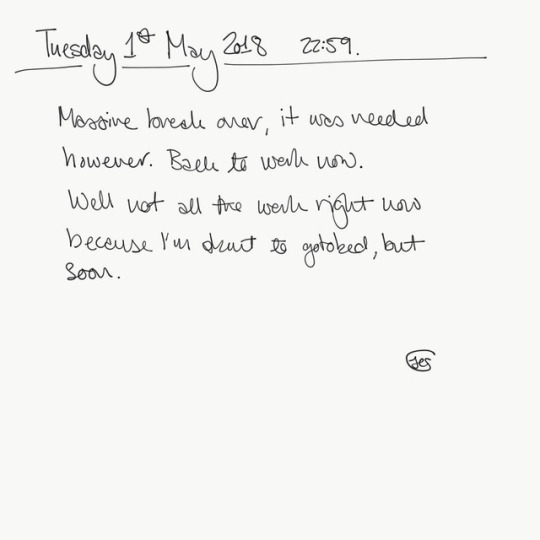 Tuesday 1st May 2018 22:59.
Massive break over, it was needed
however. Back to work now.
Well not all the work right now
because I'm about to gotobed, but
soon.
Jes